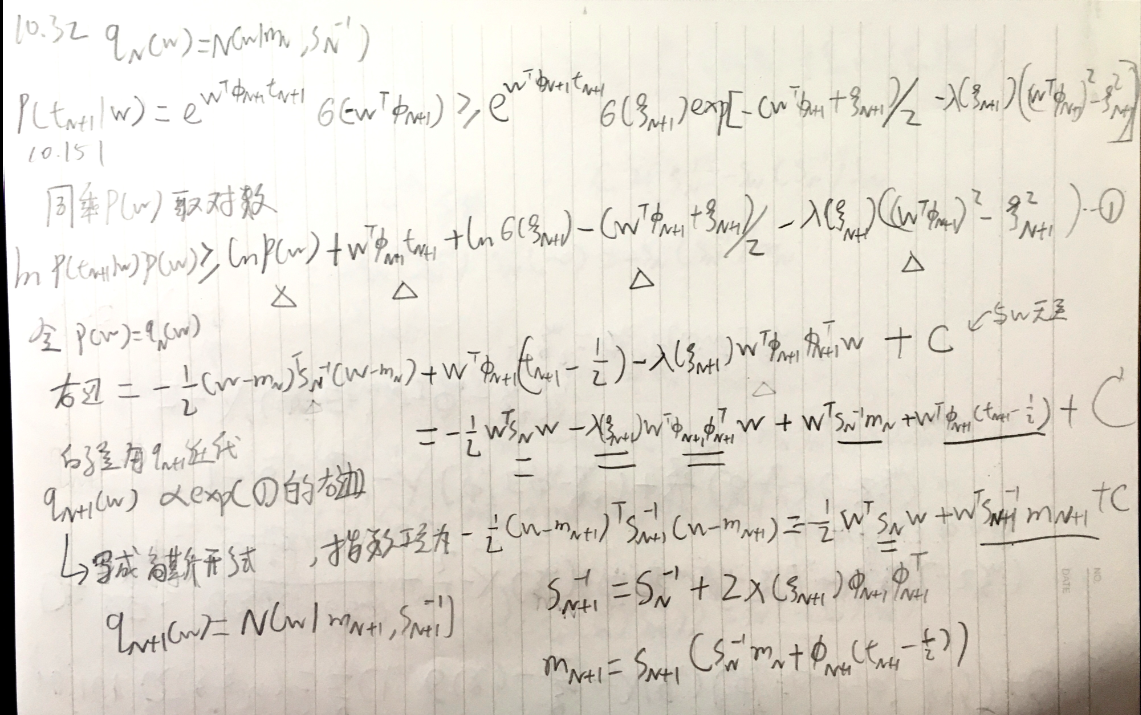 10.32 q_N(w)=N(w|m_N, S_N^{-1})
P(t_{N+1}|w) = e^{w^Tϕ_{N+1}t_{N+1}} σ(-w^Tϕ_{N+1}) ≥ e^{w^Tϕ_{N+1}t_{N+1}} σ(ξ_{N+1})exp[-(w^Tϕ_{N+1}+ξ_{N+1})/2 -λ(ξ_{N+1})((w^Tϕ_{N+1})^2-ξ_{N+1}^2)]
10.151
同乘P(w)取对数
ln P(t_{N+1}|w)P(w) ≥ ln P(w) + w^Tϕ_{N+1}t_{N+1} + ln σ(ξ_{N+1}) - (w^Tϕ_{N+1}+ξ_{N+1})/2 - λ(ξ_{N+1})((w^Tϕ_{N+1})^2 - ξ_{N+1}^2) --①
△ △ △ △
令 P(w)=q_N(w)
右边 = -\frac{1}{2}(w-m_N)^T S_N^{-1}(w-m_N) + w^Tϕ_{N+1}(t_{N+1} - \frac{1}{2}) - λ(ξ_{N+1})w^Tϕ_{N+1}ϕ_{N+1}^T w + C ↙与w无关
= -\frac{1}{2} w^T S_N w - λ(ξ_{N+1})w^Tϕ_{N+1}ϕ_{N+1}^T w + w^T S_N^{-1}m_N + w^Tϕ_{N+1}(t_{N+1}-\frac{1}{2}) + C
用q_{N+1}近似
q_{N+1}(w) ∝exp(①的右边)
↳写成高斯形式 ,指数项为 -\frac{1}{2}(w-m_{N+1})^T S_{N+1}^{-1}(w-m_{N+1}) = -\frac{1}{2} w^T S_N w + w^T S_{N+1}^{-1} m_{N+1} + C
S_{N+1}^{-1} = S_N^{-1} + 2λ(ξ_{N+1})ϕ_{N+1}ϕ_{N+1}^T
q_{N+1}(w) = N(w|m_{N+1}, S_{N+1}^{-1})
m_{N+1} = S_{N+1}(S_N^{-1}m_N + ϕ_{N+1}(t_{N+1} - \frac{1}{2}))
NO.
DATE